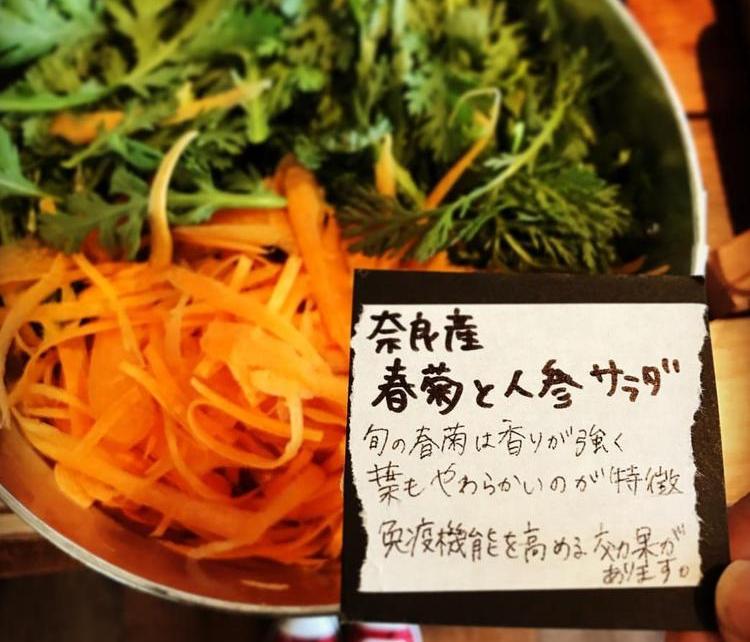 奈良産
春菊と人参サラダ
旬の春菊は香りが強く
葉もやわらかいのが特徴
免疫機能を高める効果が
あります。